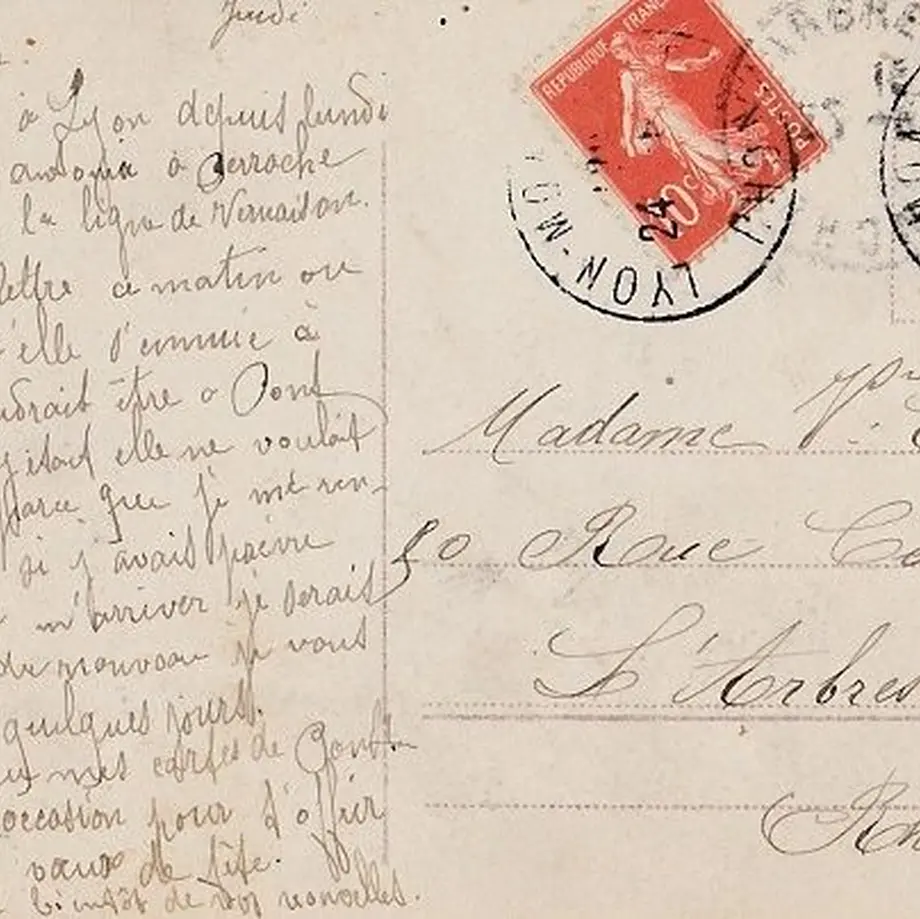 Jeudi
à Lyon depuis lundi
à Perrache
la ligne de Vernaison.
lettre ce matin ou
elle s'ennuie à
udrait être a Pont
y était elle ne voulait
parce que je me ren-
si j'avais prévu
m'arriver je serais
de nouveau je vous
quelques jours.
mes cartes de Pont
occasion pour t'offrir
vœux de fête.
bientôt de vos nouvelles.
REPUBLIQUE FRANC
POSTES
10c
24
LYON-MON
LYON
Madame Vve
50 Rue Co
L'Arbres
Rh